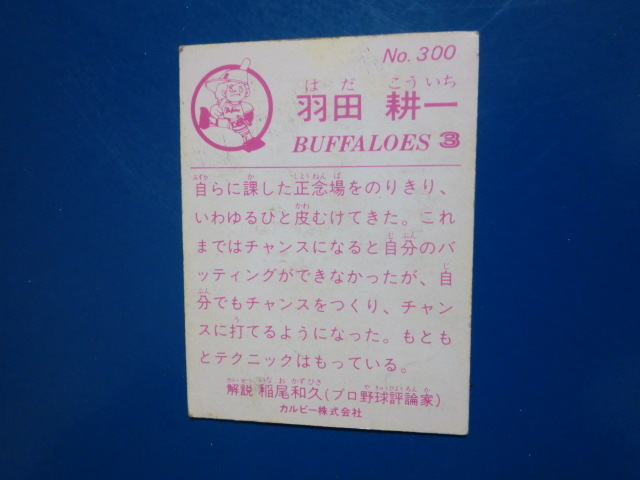 No. 300
はだ こういち
羽田 耕一
BUFFALOES 3
自らに課した正念場をのりきり、
いわゆるひと皮むけてきた。これ
まではチャンスになると自分のバ
ッティングができなかったが、自
分でもチャンスをつくり、チャン
スに打てるようになった。もとも
とテクニックはもっている。
解説 稲尾和久(プロ野球評論家)
カルビー株式会社